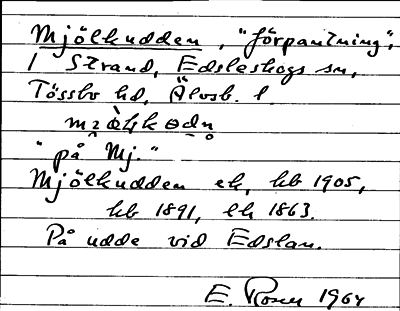 Mjölkudden, "förpantning",
i Strand, Edsleskogs sn,
Tössbo hd, Älvsb. l.
"på Mj."
Mjölkudden ek, hb 1905,
hb 1891, lh 1863.
På udde vid Edslan.
E. Rosen 1964